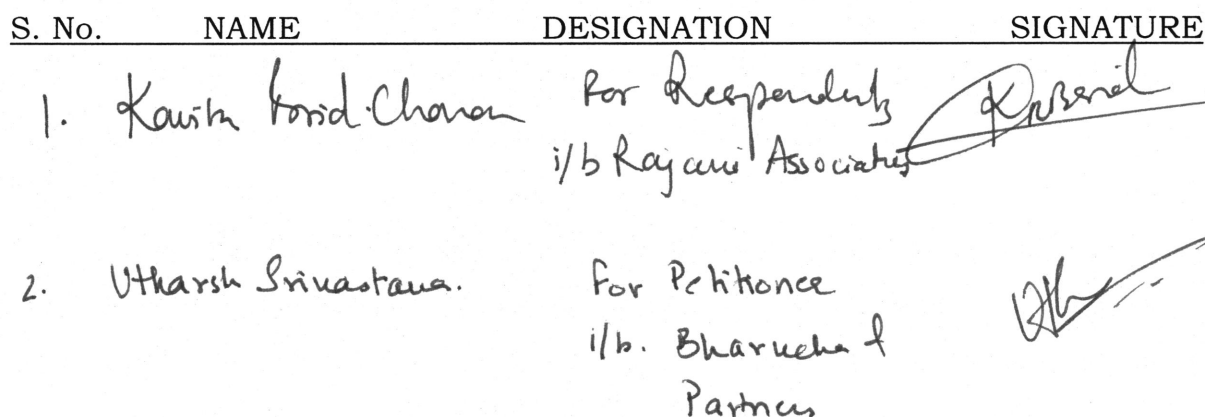 S. No. NAME DESIGNATION SIGNATURE
1. Kavita For Respondents
i/b Rajani Associates
2. Utkarsh Srivastava. For Petitioner
i/b. Bharucha &
Partners